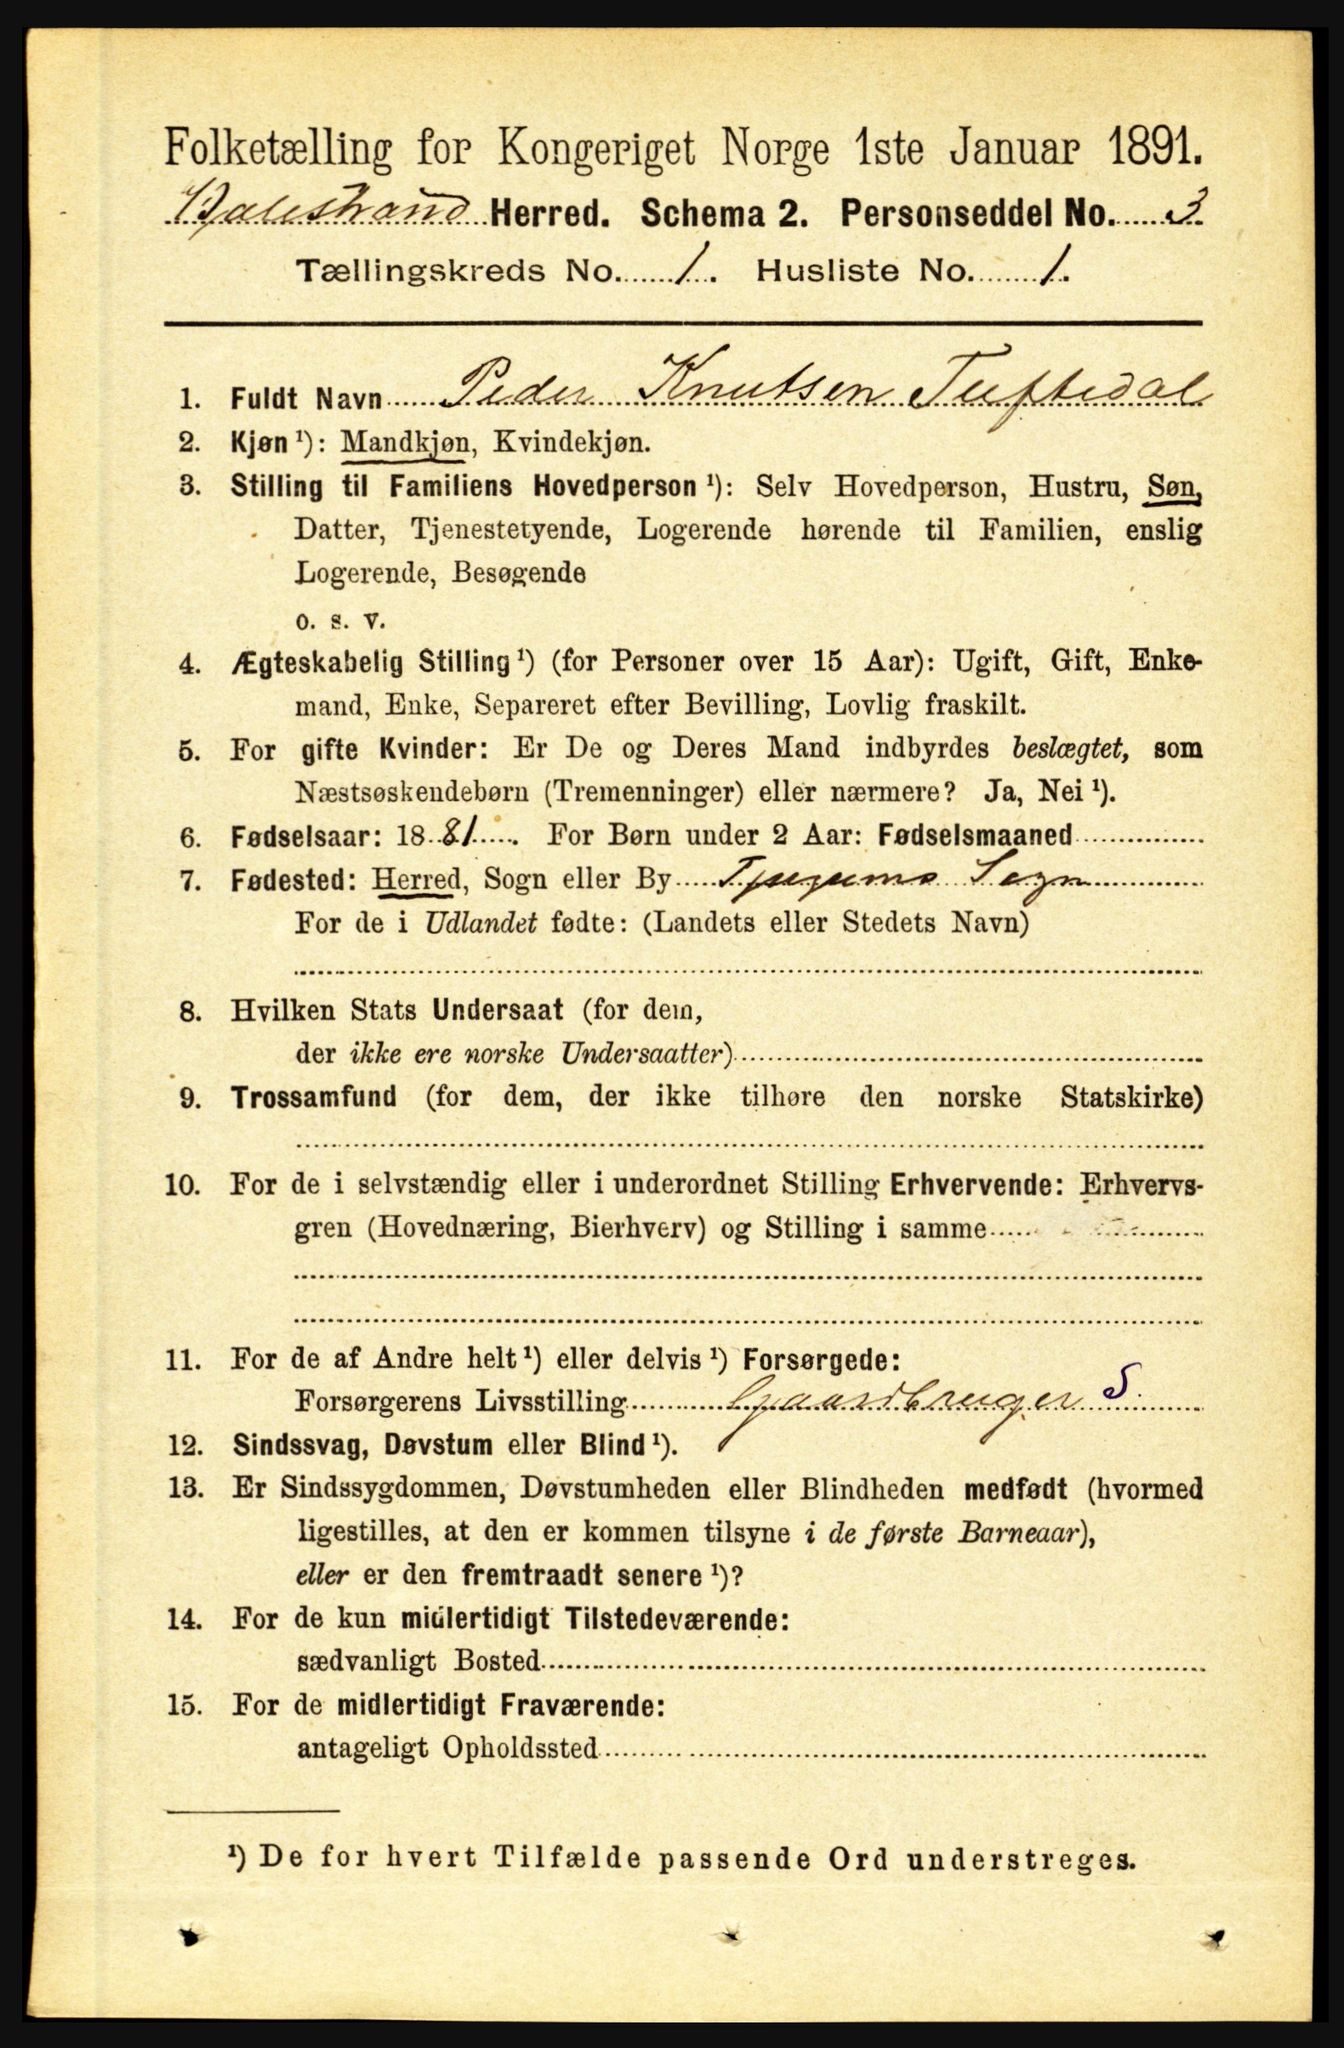 Folketælling for Kongeriget Norge 1ste Januar 1891.
Balestrand Herred. Schema 2. Personseddel No. 3
Tællingskreds No. 1. Husliste No. 1.
1. Fuldt Navn Peder Knutsen Tuftedal
2. Kjøn ¹): Mandkjøn, Kvindekjøn.
3. Stilling til Familiens Hovedperson ¹): Selv Hovedperson, Hustru, Søn,
Datter, Tjenestetyende, Logerende hørende til Familien, enslig
Logerende, Besøgende
o. s. v.
4. Ægteskabelig Stilling ¹) (for Personer over 15 Aar): Ugift, Gift, Enke-
mand, Enke, Separeret efter Bevilling, Lovlig fraskilt.
5. For gifte Kvinder: Er De og Deres Mand indbyrdes beslægtet, som
Næstsøskendebørn (Tremenninger) eller nærmere? Ja, Nei ¹).
6. Fødselsaar: 1881. For Børn under 2 Aar: Fødselsmaaned
7. Fødested: Herred, Sogn eller By Tjugums Sogn
For de i Udlandet fødte: (Landets eller Stedets Navn)
8. Hvilken Stats Undersaat (for dem,
der ikke ere norske Undersaatter)
9. Trossamfund (for dem, der ikke tilhøre den norske Statskirke)
10. For de i selvstændig eller i underordnet Stilling Erhvervende: Erhvervs-
gren (Hovednæring, Bierhverv) og Stilling i samme
11. For de af Andre helt ¹) eller delvis ¹) Forsørgede:
Forsørgerens Livsstilling Gaardbruger S.
12. Sindssvag, Døvstum eller Blind ¹).
13. Er Sindssygdommen, Døvstumheden eller Blindheden medfødt (hvormed
ligestilles, at den er kommen tilsyne i de første Barneaar),
eller er den fremtraadt senere ¹)?
14. For de kun midlertidigt Tilstedeværende:
sædvanligt Bosted
15. For de midlertidigt Fraværende:
antageligt Opholdssted
¹) De for hvert Tilfælde passende Ord understreges.